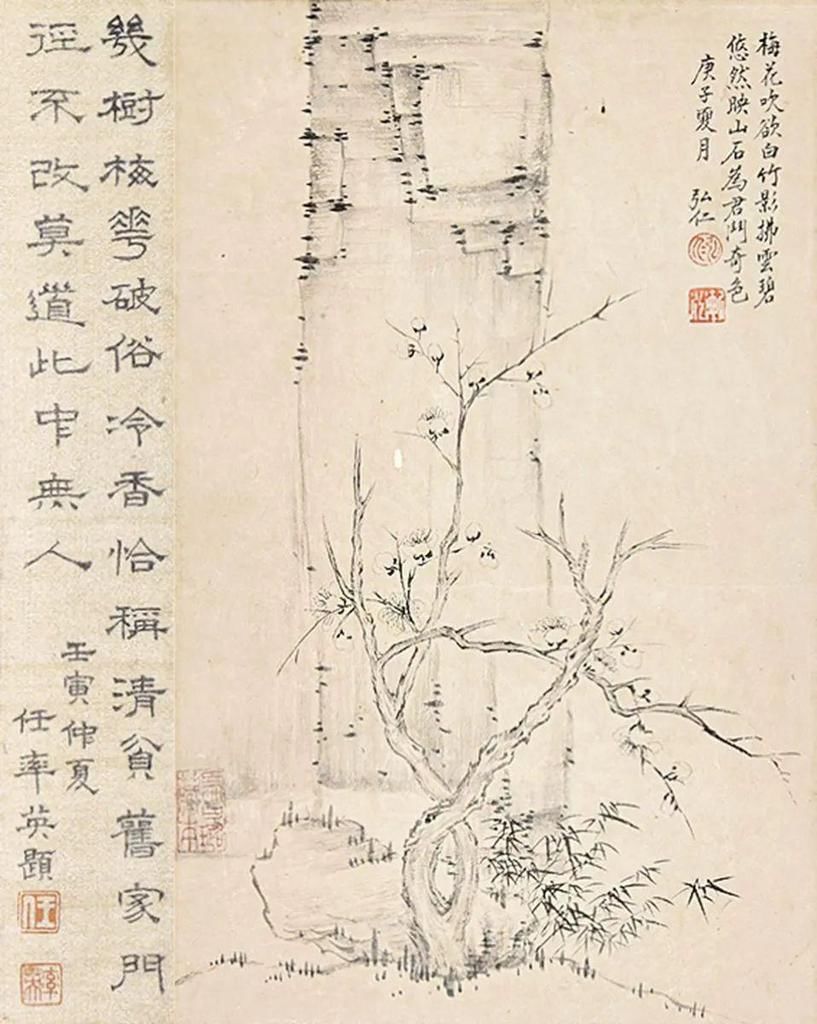 梅花吹欲白竹影拂雲碧
悠然映山石為君鬥奇色
庚子夏月
弘仁
幾樹梅花破俗冷香恰稱清貧舊家門
徑不改莫道此中無人
壬寅仲夏
任率英題
任